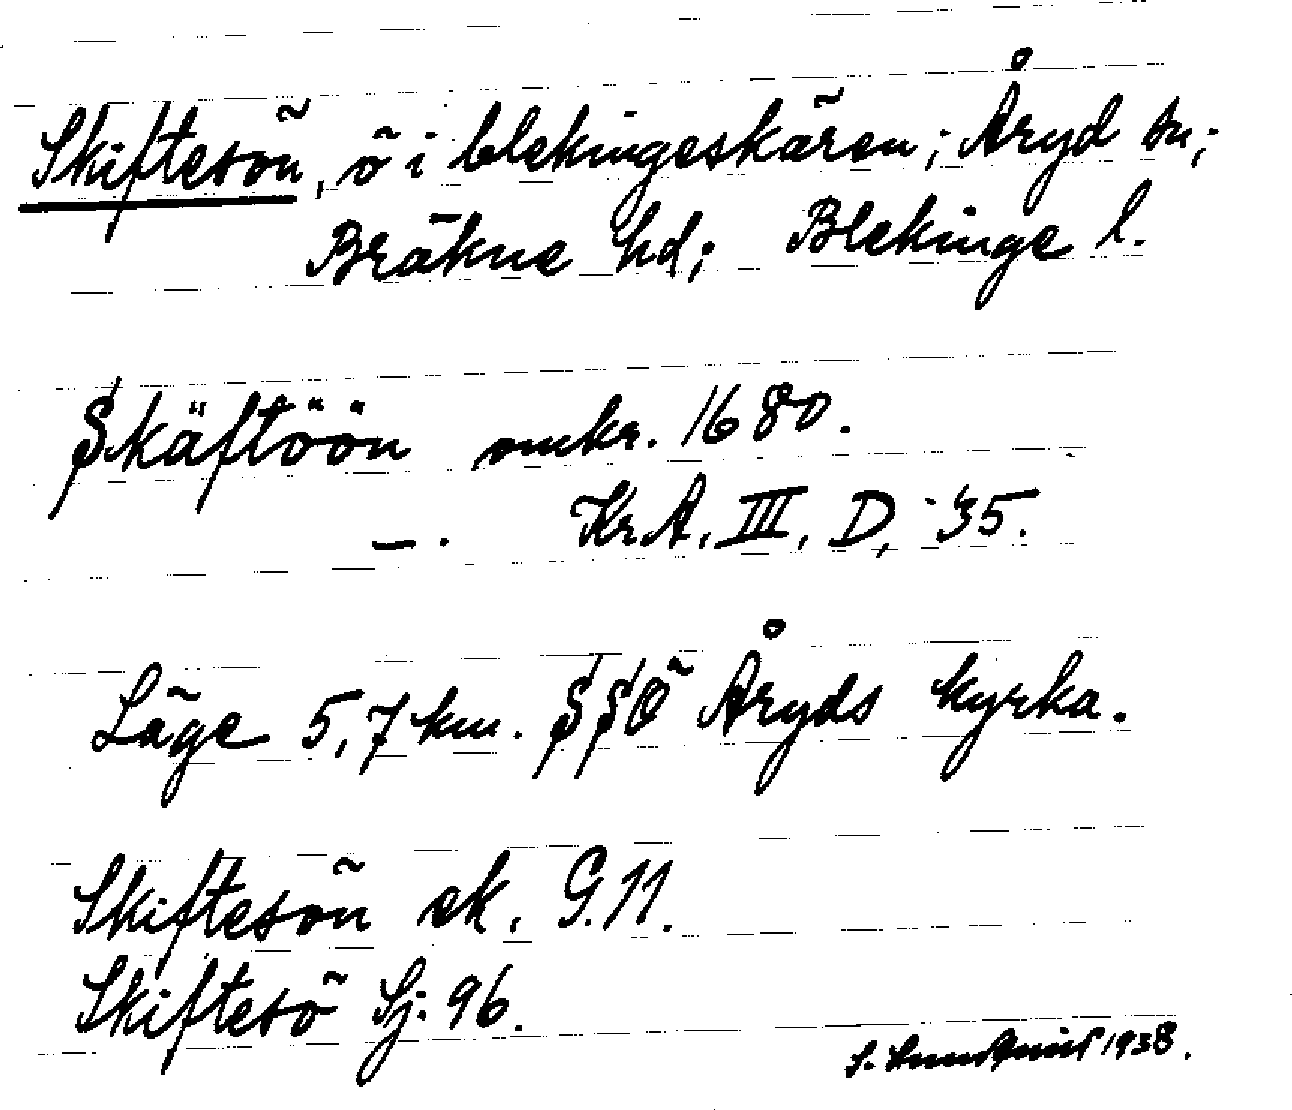 Skiftesön, ö i blekingeskären; Åryd sn;
Bräkne hd; Blekinge l.
Skäftöön omkr. 1680.
—. Kr.A, III, D, 35.
Läge 5,7 km. SSÖ Åryds kyrka.
Skiftesön ek. G. 11.
Skiftesö Sj: 96.
S. 1938.